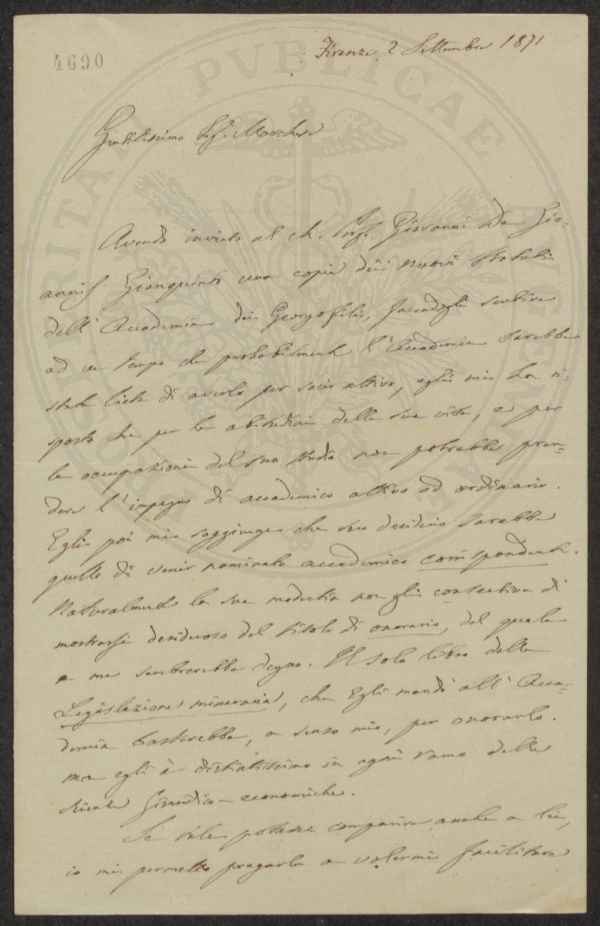 4690
PVBLICAE
Firenze 2 Settembre 1871
Gentilissimo Sig. Marchese
Avendo inviato al ch. Prof. Giovanni De Gio-
annis Gianquinto una copia dei nuovi Statuti
dell'Accademia dei Georgofili, facendogli sentire
ad un tempo che probabilmente l'Accademia sarebbe
stata lieta di averlo per socio attivo, egli mi ha ri-
sposto che per le abitudini della sua vita, e per
le occupazioni del suo studio non potrebbe pren-
dere l'impegno di accademico attivo od ordinario.
Egli poi mi soggiunge che suo desiderio sarebbe
quello di venir nominato accademico corrispondente.
Naturalmente la sua modestia non gli consentiva di
mostrarsi desideroso del titolo di onorario, del quale
a me sembrerebbe degno. Il solo libro della
Legislazione mineraria, che Egli mandò all'Acca-
demia basterebbe, a senso mio, per onorarlo.
ma egli è distintissimo in ogni ramo delle
scienze giuridico-economiche.
Se tale potesse comparire anche a Lei,
io mi permetto pregarla a volermi facilitare